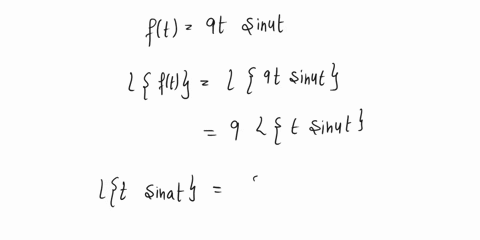 f(t) = 9t sinut
L{f(t)} = L{9t sinut}
= 9 L{t sinut}
L{t sinat} =